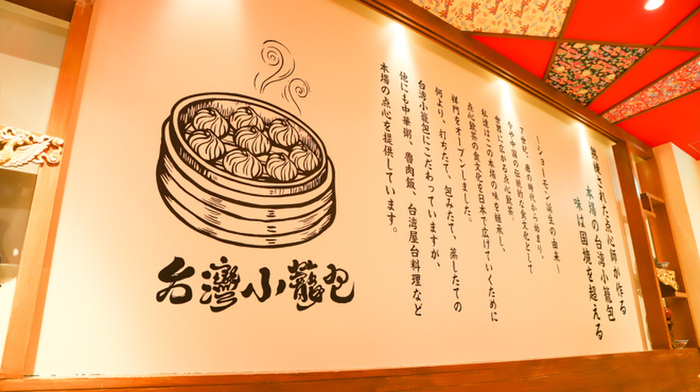 熟練された点心師が作る
本場の台湾小籠包
味は国境を超える
―ショーモン誕生の由来―
7世紀、唐の時代から始まり、
今や中国の伝統的な食文化として
世界に広がる点心飲茶。
私達はこの本場の味を継承し、
点心飲茶の食文化を日本で広げていくために
祥門をオープンしました。
何より、打ちたて、包みたて、蒸したての
台湾小籠包にこだわっていますが、
他にも中華粥、魯肉飯、台湾屋台料理など
本場の点心を提供しています。
台灣小籠包